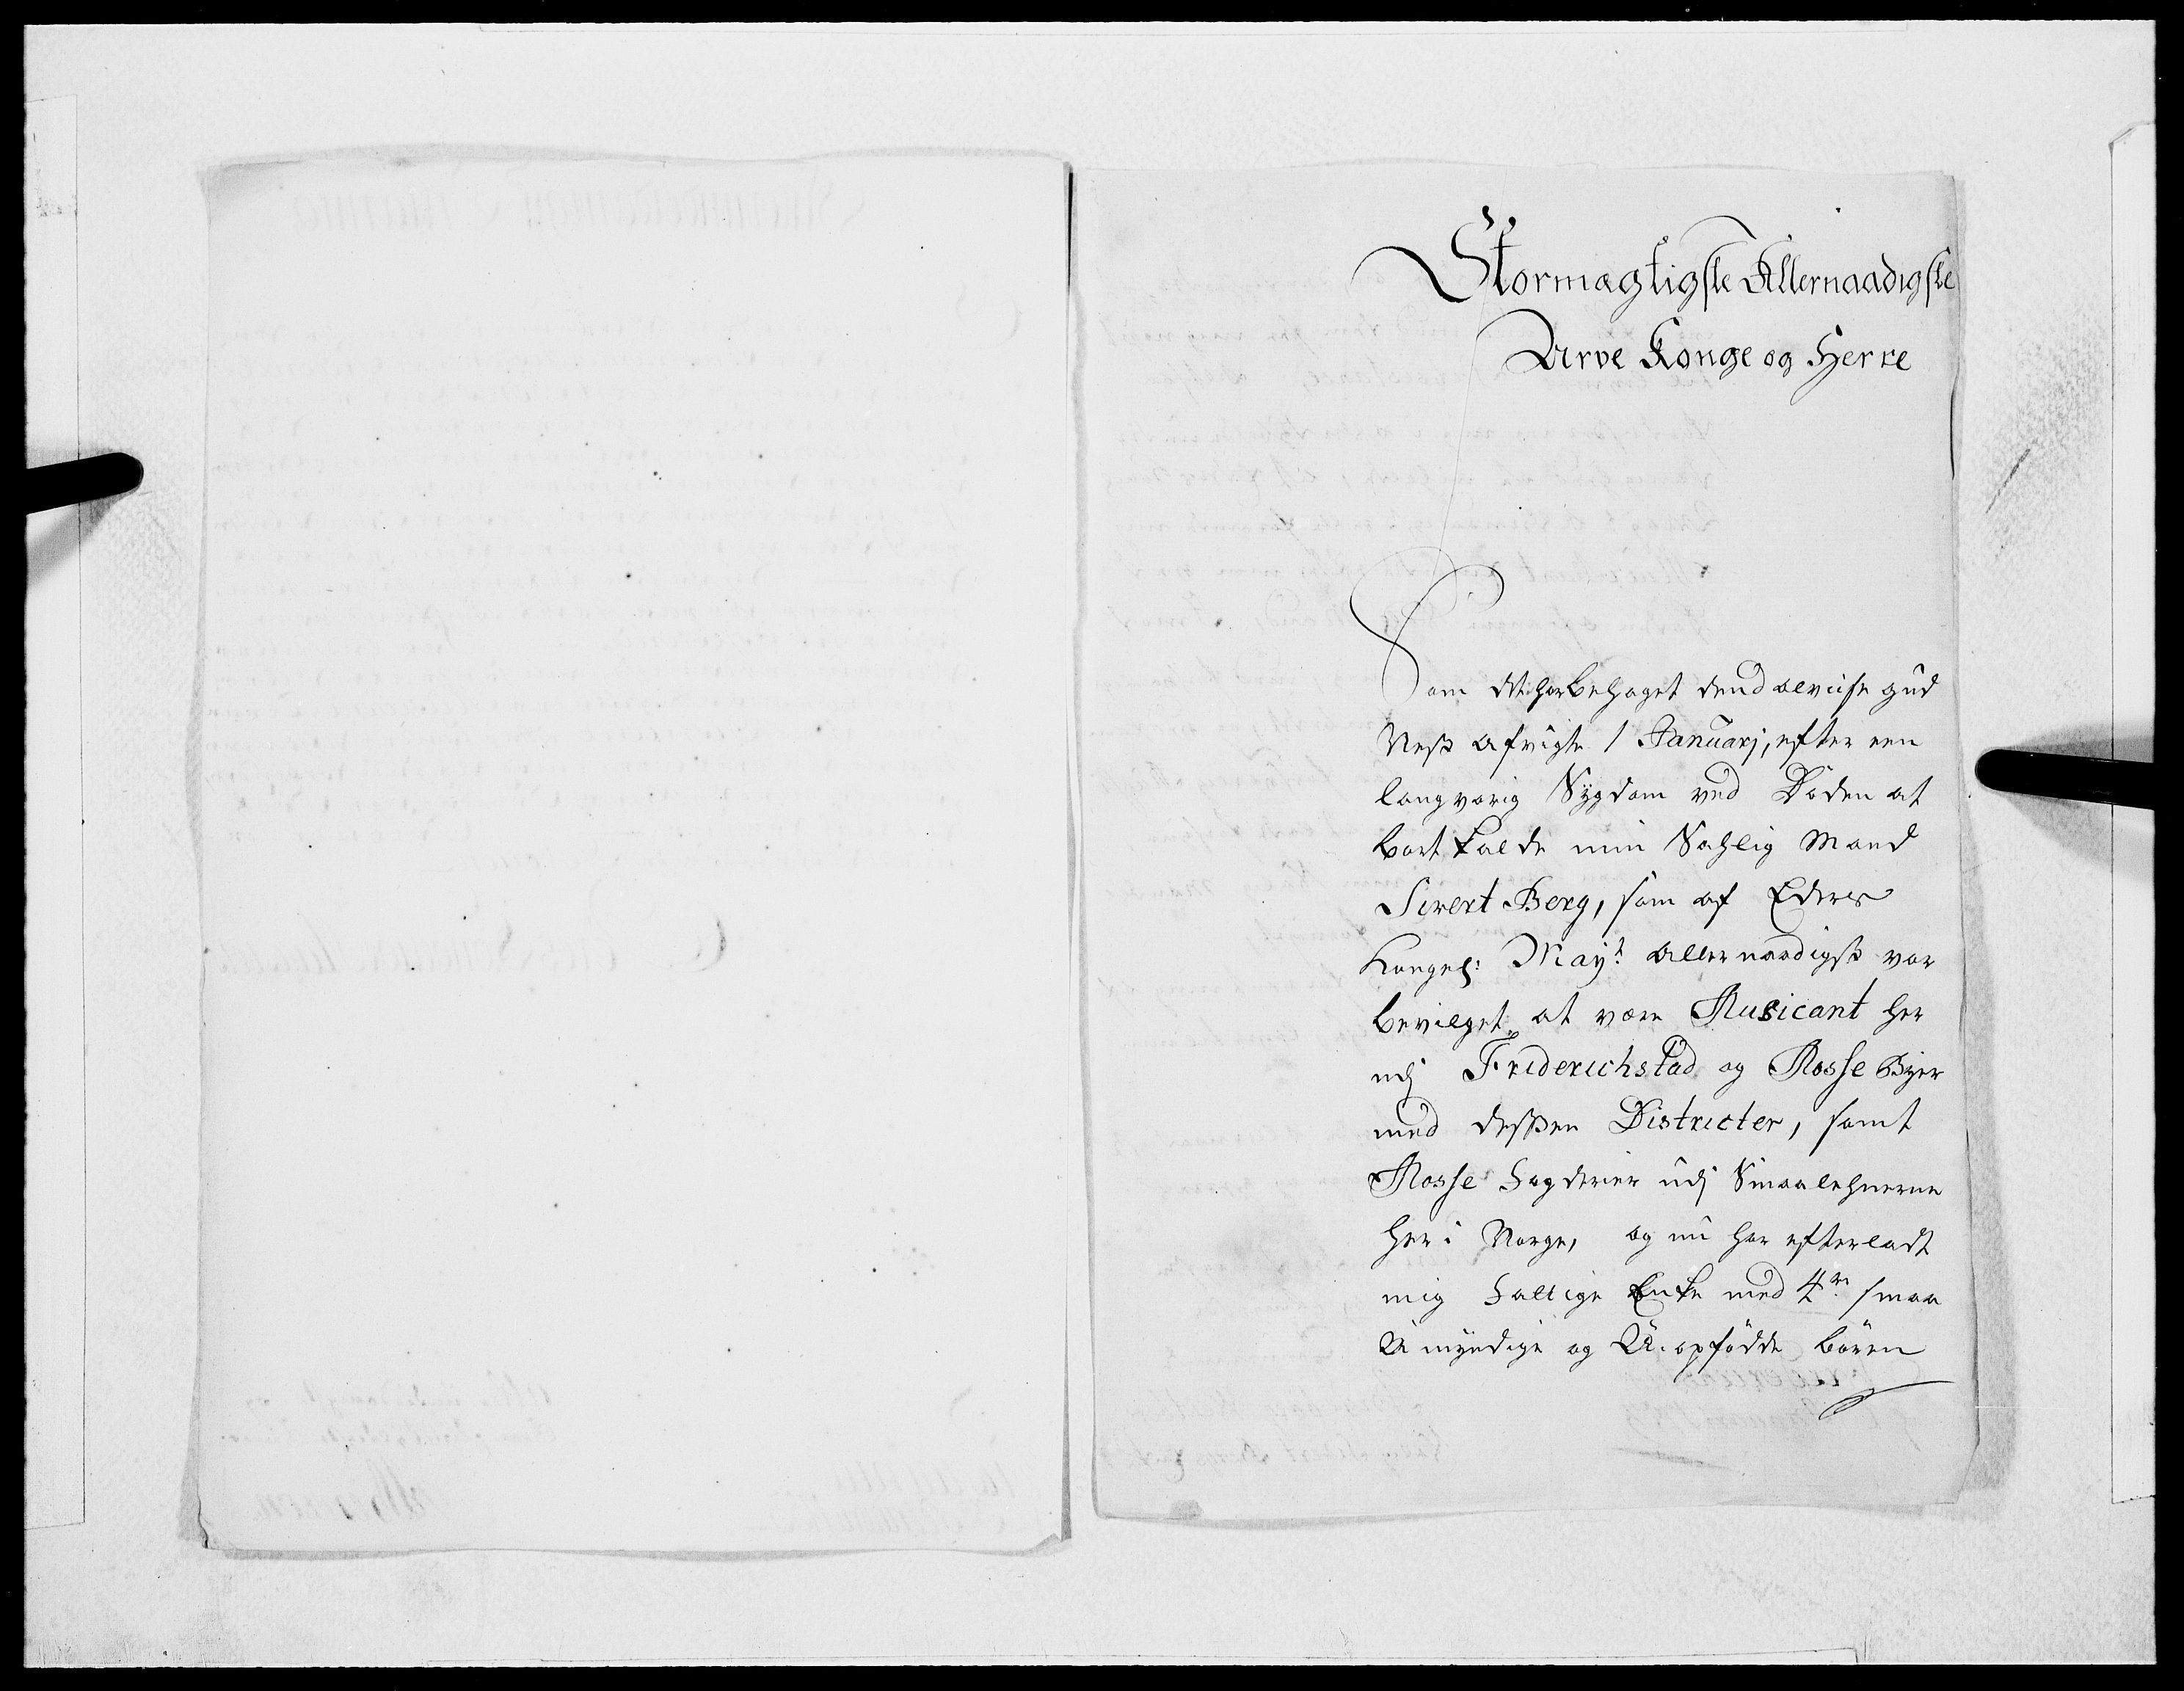 Stormægtigste Allernaadigste
Arve Konge og Herre
Som det har behaget dend alviise gud
Nest afvigte 1 Januarj, efter een
langvarig Sygdom ved Døden at
bortkalde min Sahlig Mand
Sivert Berg, som af Eders
Kongel: Mayt: allernaadigst var
bevilget at være Musicant her
udj Friderichstad og Mosse Byer
med desßen Districter, samt
Mosse Fogderier udj Smaalehnerne
her i Norge, og nu har efterladt
mig Fattige Enke med 4re smaa
Umyndige og U-opfødde børn